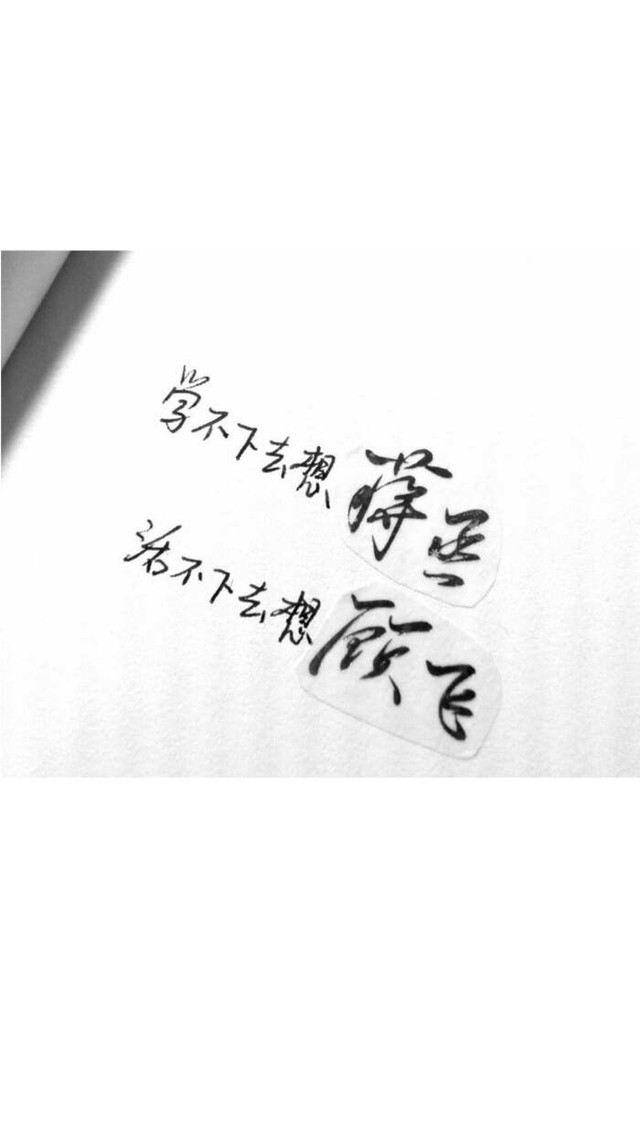 学不下去想蒋丞
活不下去想顾飞